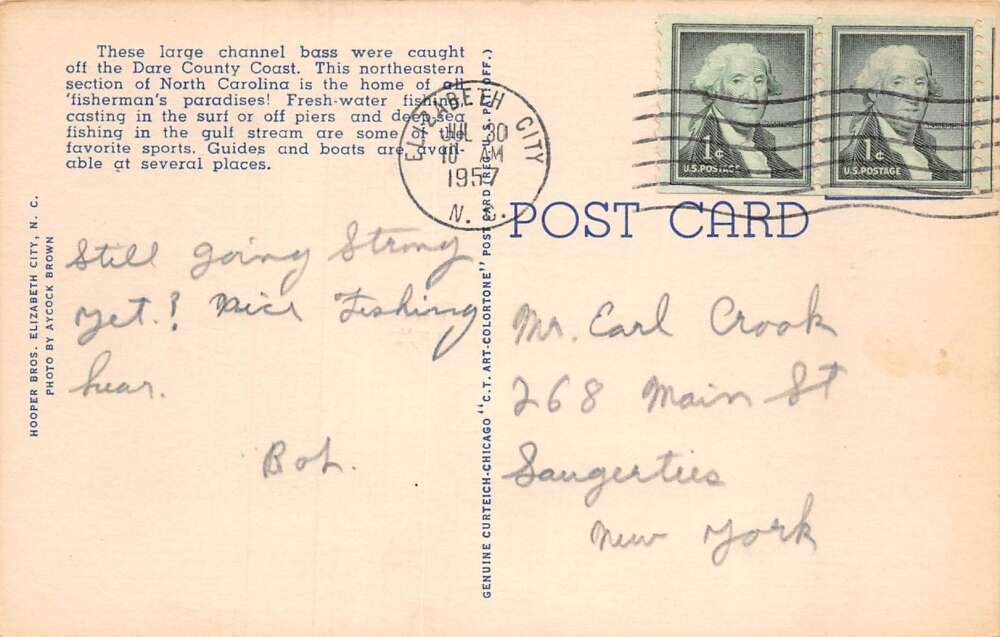 These large channel bass were caught
off the Dare County Coast. This northeastern
section of North Carolina is the home of all
'fisherman's paradises! Fresh-water fishing,
casting in the surf or off piers and deep-sea
fishing in the gulf stream are some of the
favorite sports. Guides and boats are avail-
able at several places.
HOOPER BROS. ELIZABETH CITY, N. C.
PHOTO BY AYCOCK BROWN
Still going Strong
yet.! Nice Fishing
hear.
Bob.
GENUINE CURTEICH-CHICAGO "C.T. ART-COLORTONE" POST CARD (REG. U.S. PAT. OFF.)
ELIZABETH CITY
JUL 30
10 AM
1957
N. C.
1¢
U.S. POSTAGE
1¢
U.S. POSTAGE
POST CARD
Mr. Earl Crook
268 Main St
Saugerties
New York